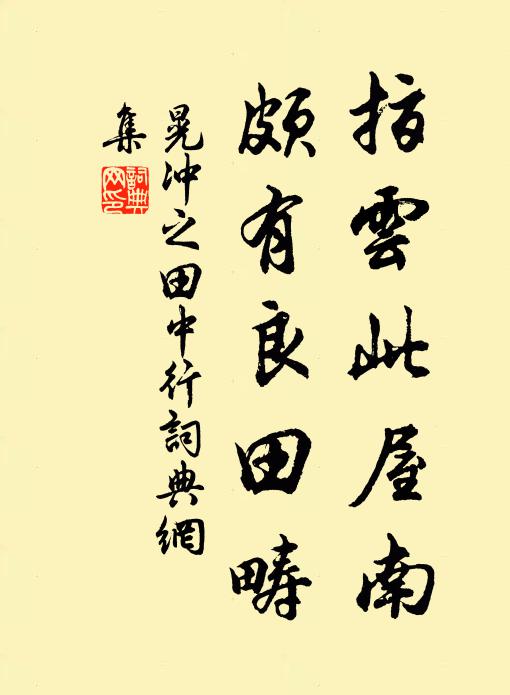 指雲此屋南
頗有良田疇
晁冲之田中行詞典網
集
詞典
网印